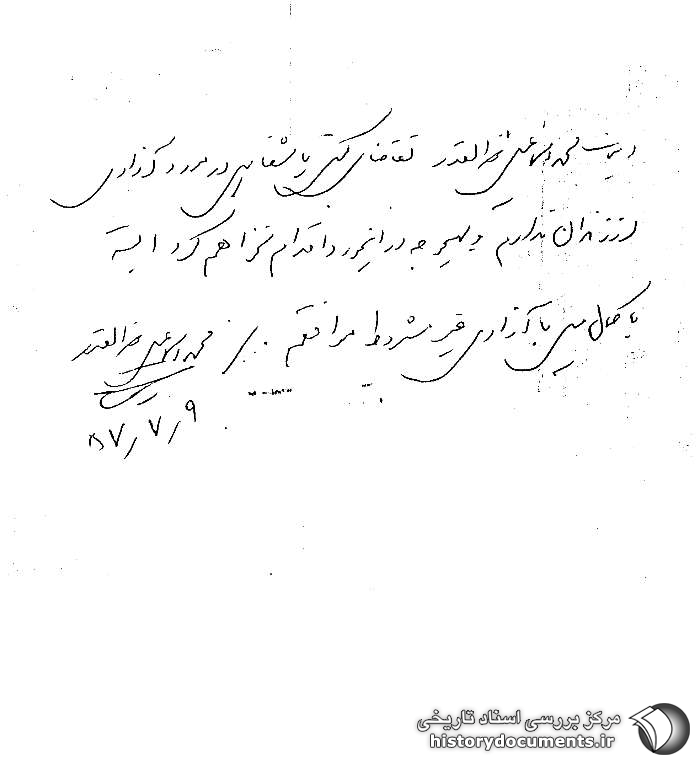 اینجانب محمد اسماعیل خیرالقدر تقاضای کتبی یا شفاهی در مورد آزادی
از زندان ندارم و بهیچوجه در اینمورد اقدام نخواهم کرد البته
با کمال میل با آزادی غیر مشروط موافقم. محمد اسماعیل خیرالقدر
۵۷/۷/۹
مرکز بررسی اسناد تاریخی
historydocuments.ir